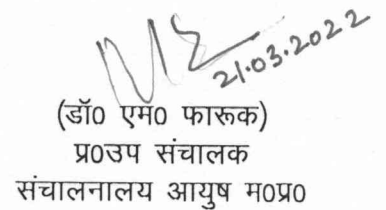 21.03.2022
(डॉ0 एम0 फारूक)
प्र0उप संचालक
संचालनालय आयुष म0प्र0